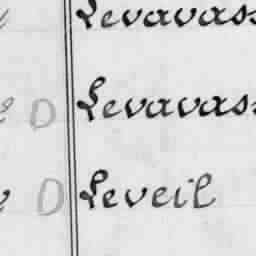 Levavass
D Levavass
D Leveil